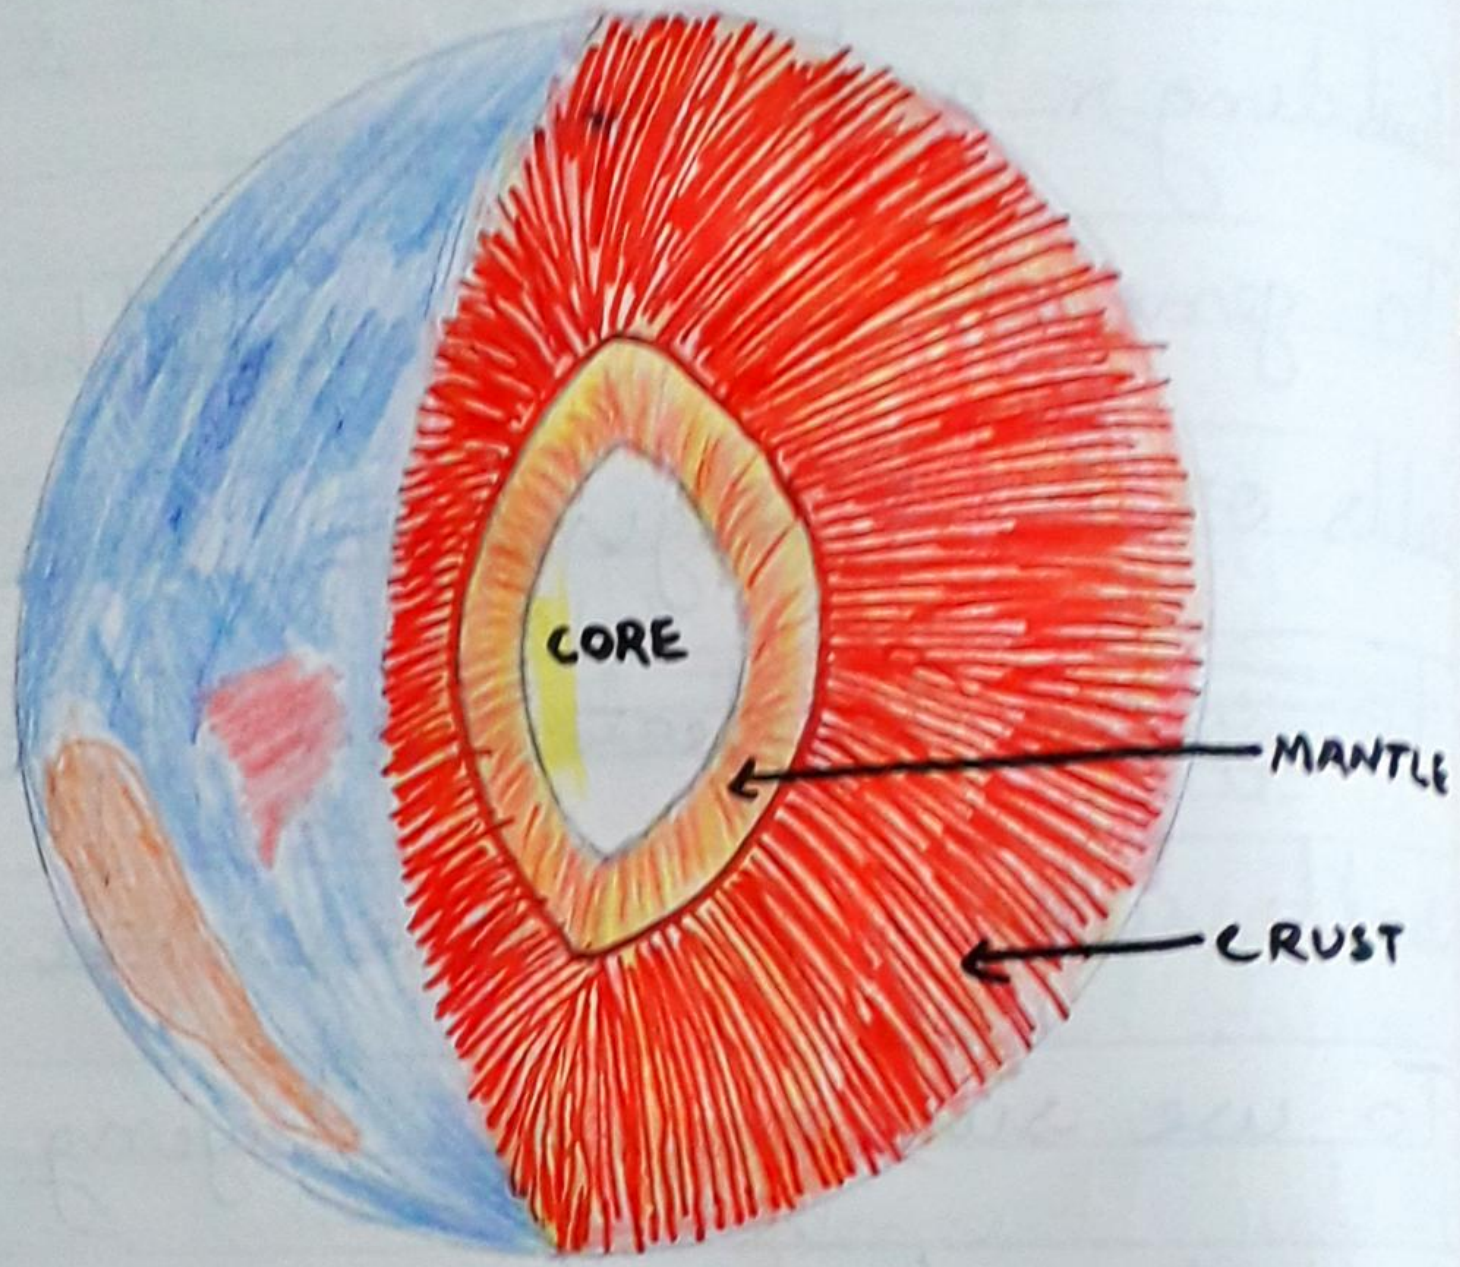 CORE
MANTLE
CRUST